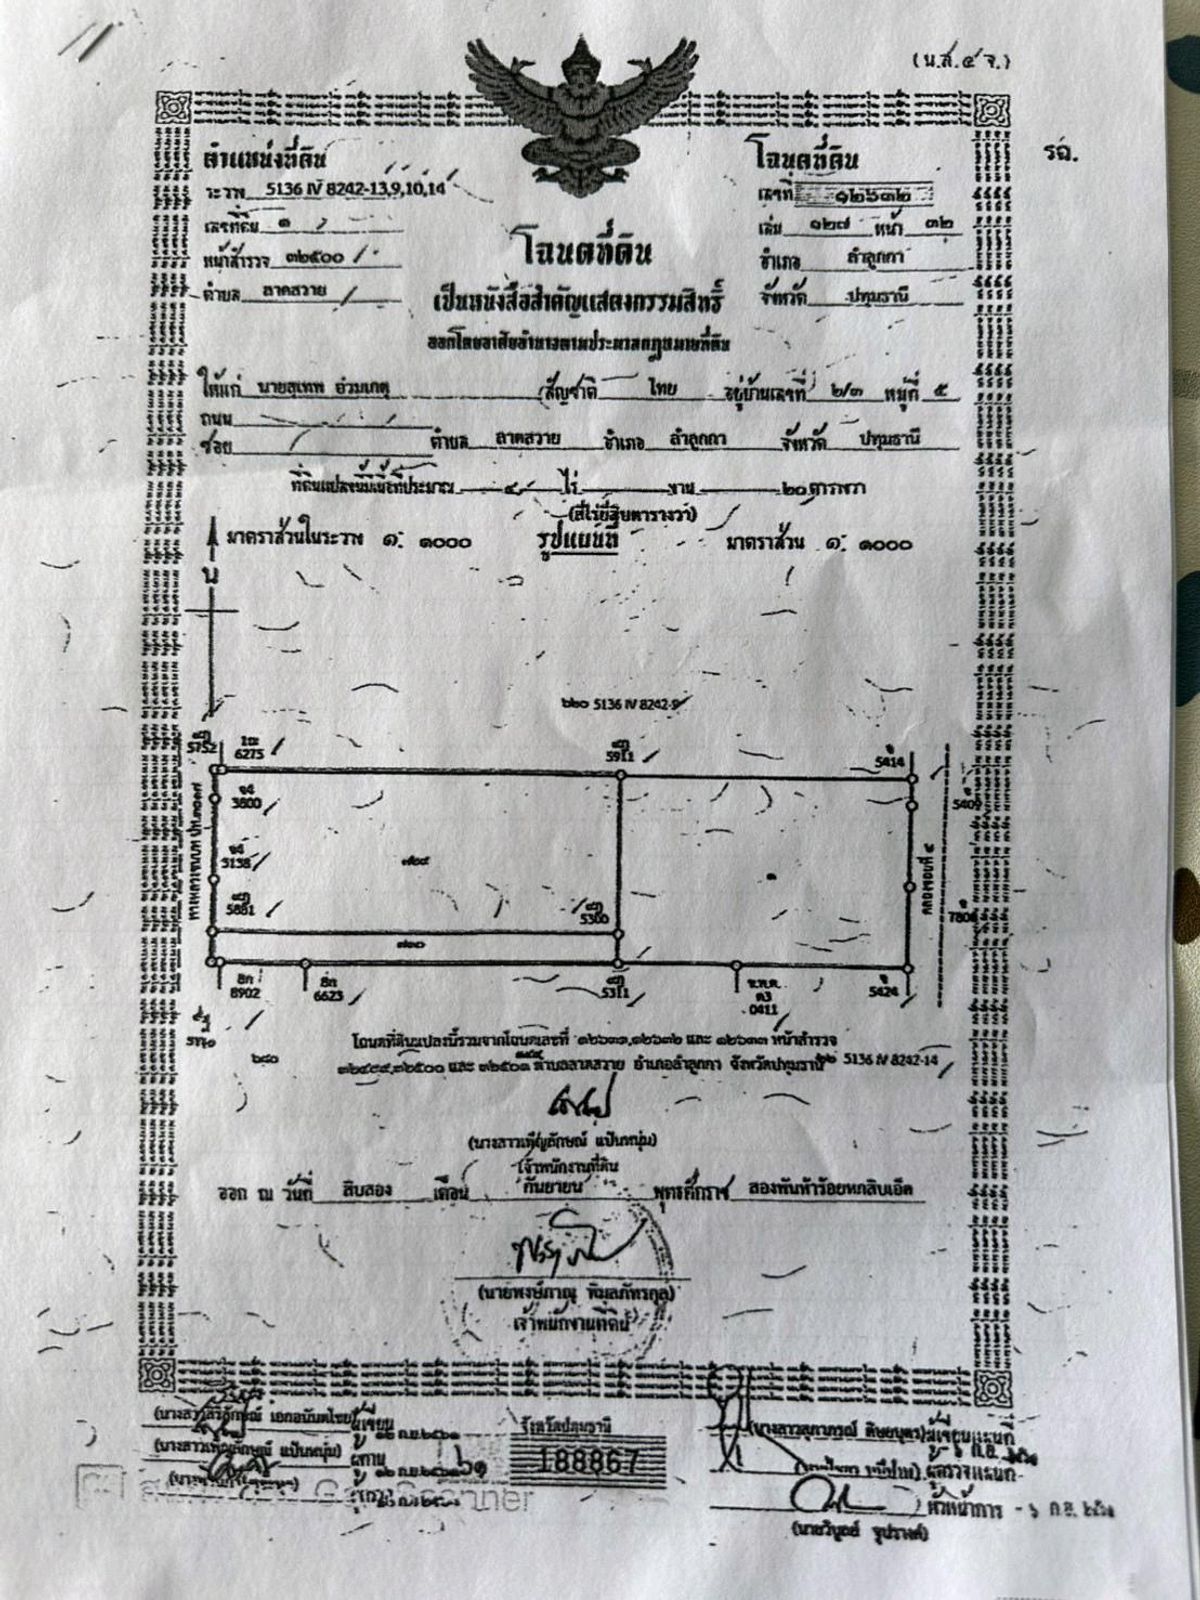 (น.ส.๔ จ.)
ตำแหน่งที่ดิน
โฉนดที่ดิน
รฉ.
ระวาง 5136 IV 8242-13,9,10,14
เลขที่ ๑๒๖๓๒
เลขที่ดิน ๑
เล่ม ๑๒๗ หน้า ๓๒
หน้าสำรวจ ๓๒๕๐๐
อำเภอ ลำลูกกา
ตำบล ลาดสวาย
จังหวัด ปทุมธานี
โฉนดที่ดิน
เป็นหนังสือสำคัญแสดงกรรมสิทธิ์
ออกโดยอาศัยอำนาจตามประมวลกฎหมายที่ดิน
ให้แก่ นายสุเทพ อ่วมเกตุ สัญชาติ ไทย อยู่บ้านเลขที่ ๒/๓ หมู่ที่ ๕
ถนน
ซอย ตำบล ลาดสวาย อำเภอ ลำลูกกา จังหวัด ปทุมธานี
ที่ดินแปลงนี้มีเนื้อที่ประมาณ ๔ ไร่ งาน ๒๐ ตารางวา
(สี่ไร่ยี่สิบตารางวา)
มาตราส่วนในระวาง ๑: ๑๐๐๐ รูปแผนที่ มาตราส่วน ๑: ๑๐๐๐
น
๒๒๐ 5136 IV 8242-9
5752
6275
5911
5414
จ4
3800
5409
จ4
5138
๗๒๙
คลองซอยที่ ๕
5881
5300
7808
๗๓๐
8902
6623
5311
ข.พ.ด.
ด3
0411
5424
๒๘๐
โฉนดที่ดินแปลงนี้รวมจากโฉนดเลขที่ ๑๒๖๓๑,๑๒๖๓๒ และ ๑๒๖๓๓ หน้าสำรวจ
๓๒๔๙๙,๓๒๕๐๐ และ ๓๒๕๐๑ ตำบลลาดสวาย อำเภอลำลูกกา จังหวัดปทุมธานี
5136 IV 8242-14
(นางสาวเพ็ญลักษณ์ แป้นหนุ่ม)
เจ้าพนักงานที่ดิน
ออก ณ วันที่ สิบสอง เดือน กันยายน พุทธศักราช สองพันห้าร้อยหกสิบเอ็ด
(นายพงษ์ภาณุ พิมลภัทรกุล)
เจ้าพนักงานที่ดิน
เอกอนันตไชย) ผู้เขียน
๑๒ ก.ย.๒๕๖๑
(นางสาวเพ็ญลักษณ์ แป้นหนุ่ม) ผู้ทาน
จังหวัดปทุมธานี
188867
ผู้เขียนแผนที่
๖ ก.ย. ๒๕๖๑
ผู้ตรวจแผนที่
หัวหน้าการ - ๖ ก.ย. ๒๕๖๑